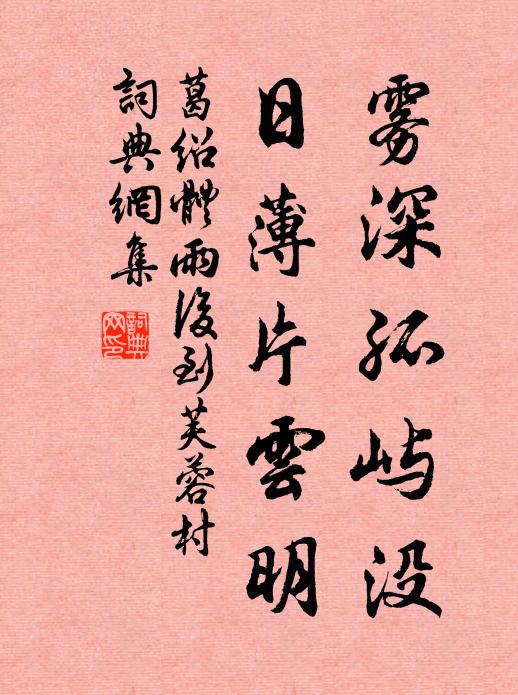 雾深孤屿没
日薄片雲明
葛绍體雨後到芙蓉村
詞典網集
詞典網印